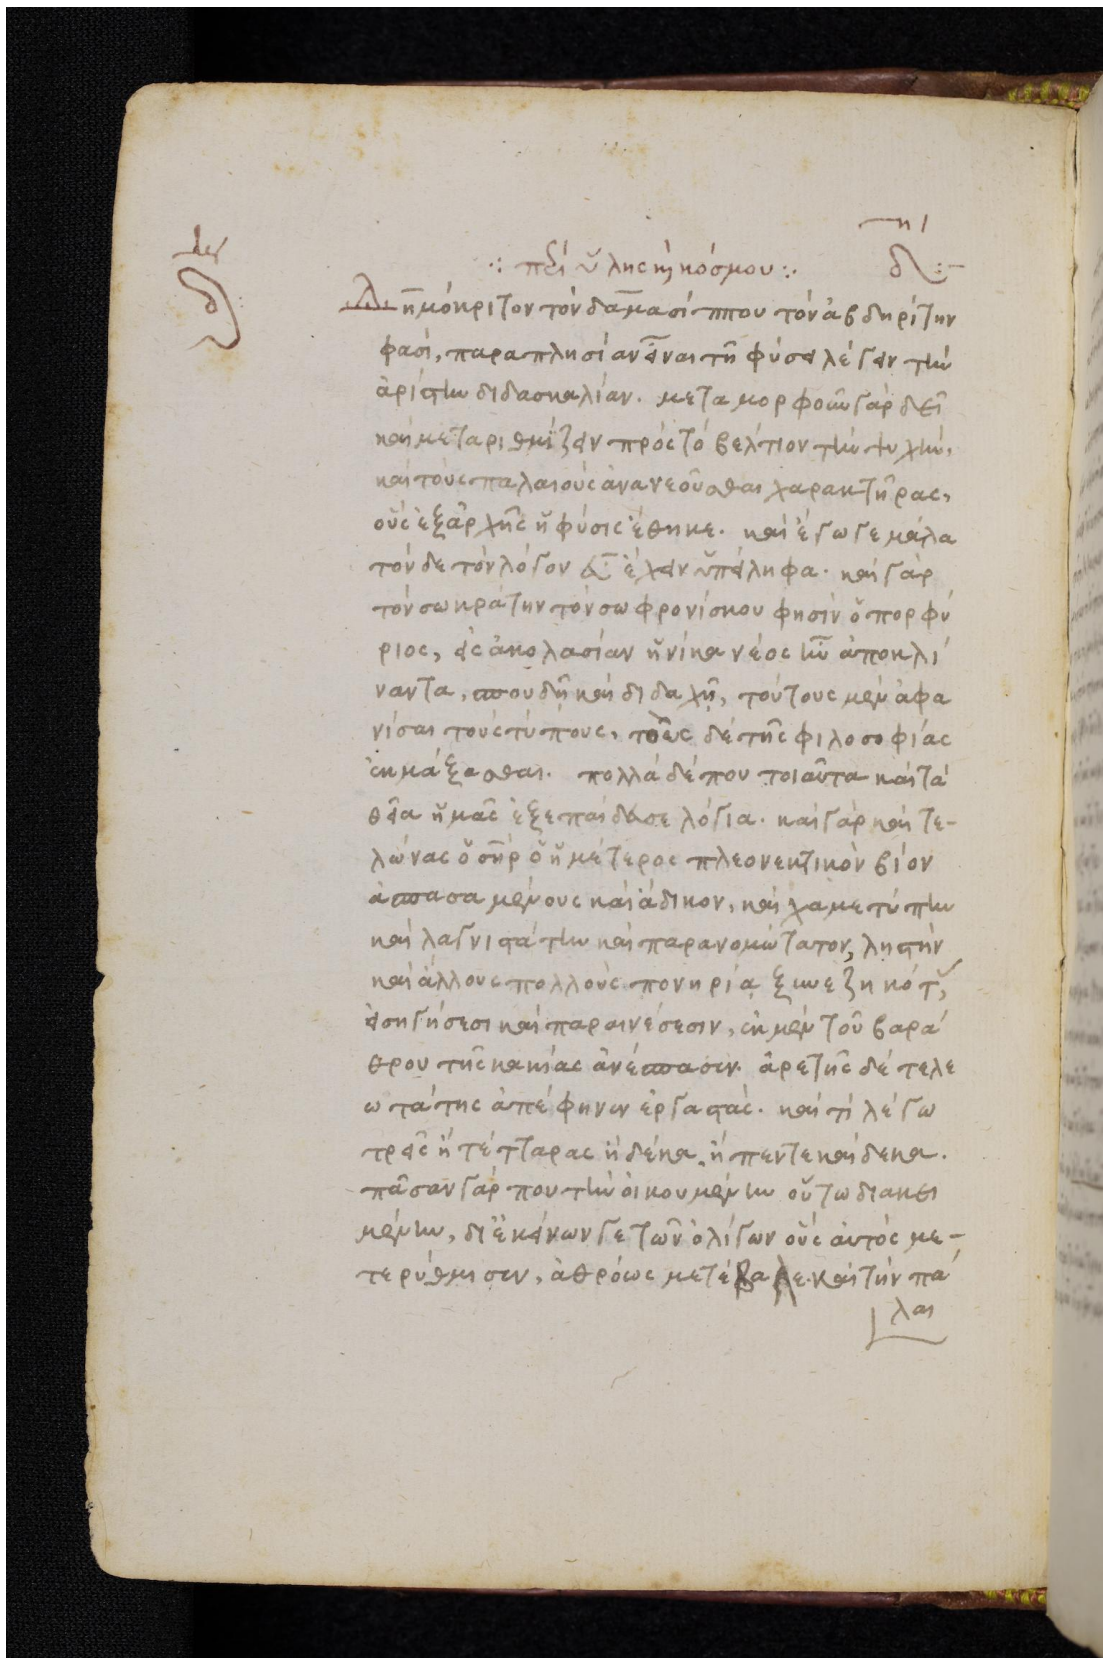 περὶ ὕλης καὶ κόσμου δ
Δημόκριτον τὸν δαμασίππου τὸν ἀβδηρίτην
φασὶ, παραπλησίαν εἶναι τῆ φύσει λέγειν τὴν
ἀρίστην διδασκαλίαν. μεταμορφοῦν γὰρ δεῖ
καὶ μεταριθμίζειν πρὸς τὸ βέλτιον τὴν ψυχὴν,
καὶ τοὺς παλαιοὺς ἀνανεοῦσθαι χαρακτῆρας,
οὓς ἐξαρχῆς ἡ φύσις ἔθηκε. καὶ ἔγωγε μάλα
τόνδε τὸν λόγον εὖ ἔχειν ὑπείληφα. καὶ γὰρ
τὸν σωκράτην τὸν σωφρονίσκου φησὶν ὁ πορφύ
ριος, εἰς ἀκολασίαν ἡνίκα νέος ἦν ἀποκλί
ναντα, σπουδῆ καὶ διδαχῆ, τούτους μὲν ἀφα
νίσαι τοὺς τύπους, τοὺς δὲ τῆς φιλοσοφίας
ἐκμάξασθαι. πολλὰ δέπου τοιαῦτα καὶ τὰ
θεῖα ἡμᾶς ἐξεπαίδευσε λόγια. καὶ γὰρ καὶ τε-
λώνας ὁ σὴρ ὁ ἡμέτερος πλεονεκτικὸν βίον
ἀσπασαμένους καὶ ἄδικον, καὶ χαμετύπην
καὶ λαγνιστάτην καὶ παρανομώτατον, ληστὴν
καὶ ἄλλους πολλοὺς πονηρία ξυνεζηκότας,
εἰσηγήσεσι καὶ παραινέσεσιν, ἐκ μὲν τοῦ βαρά
θρου τῆς κακίας ἀνέσπασεν. ἀρετῆς δὲ τελε
ωτάτης ἀπέφηνεν ἐργάστας. καὶ τί λέγω
τρεῖς ἢ τέτταρας ἢ δέκα, ἢ πεντεκαίδεκα.
πᾶσαν γάρ που τὴν οἰκουμένην οὕτω διακει
μένην, δι' ἐκείνων γε τῶν ὀλίγων οὓς αὐτὸς με-
τερύθμισεν, ἀθρόως μετέβαλε. καὶ τὴν πά
λαι